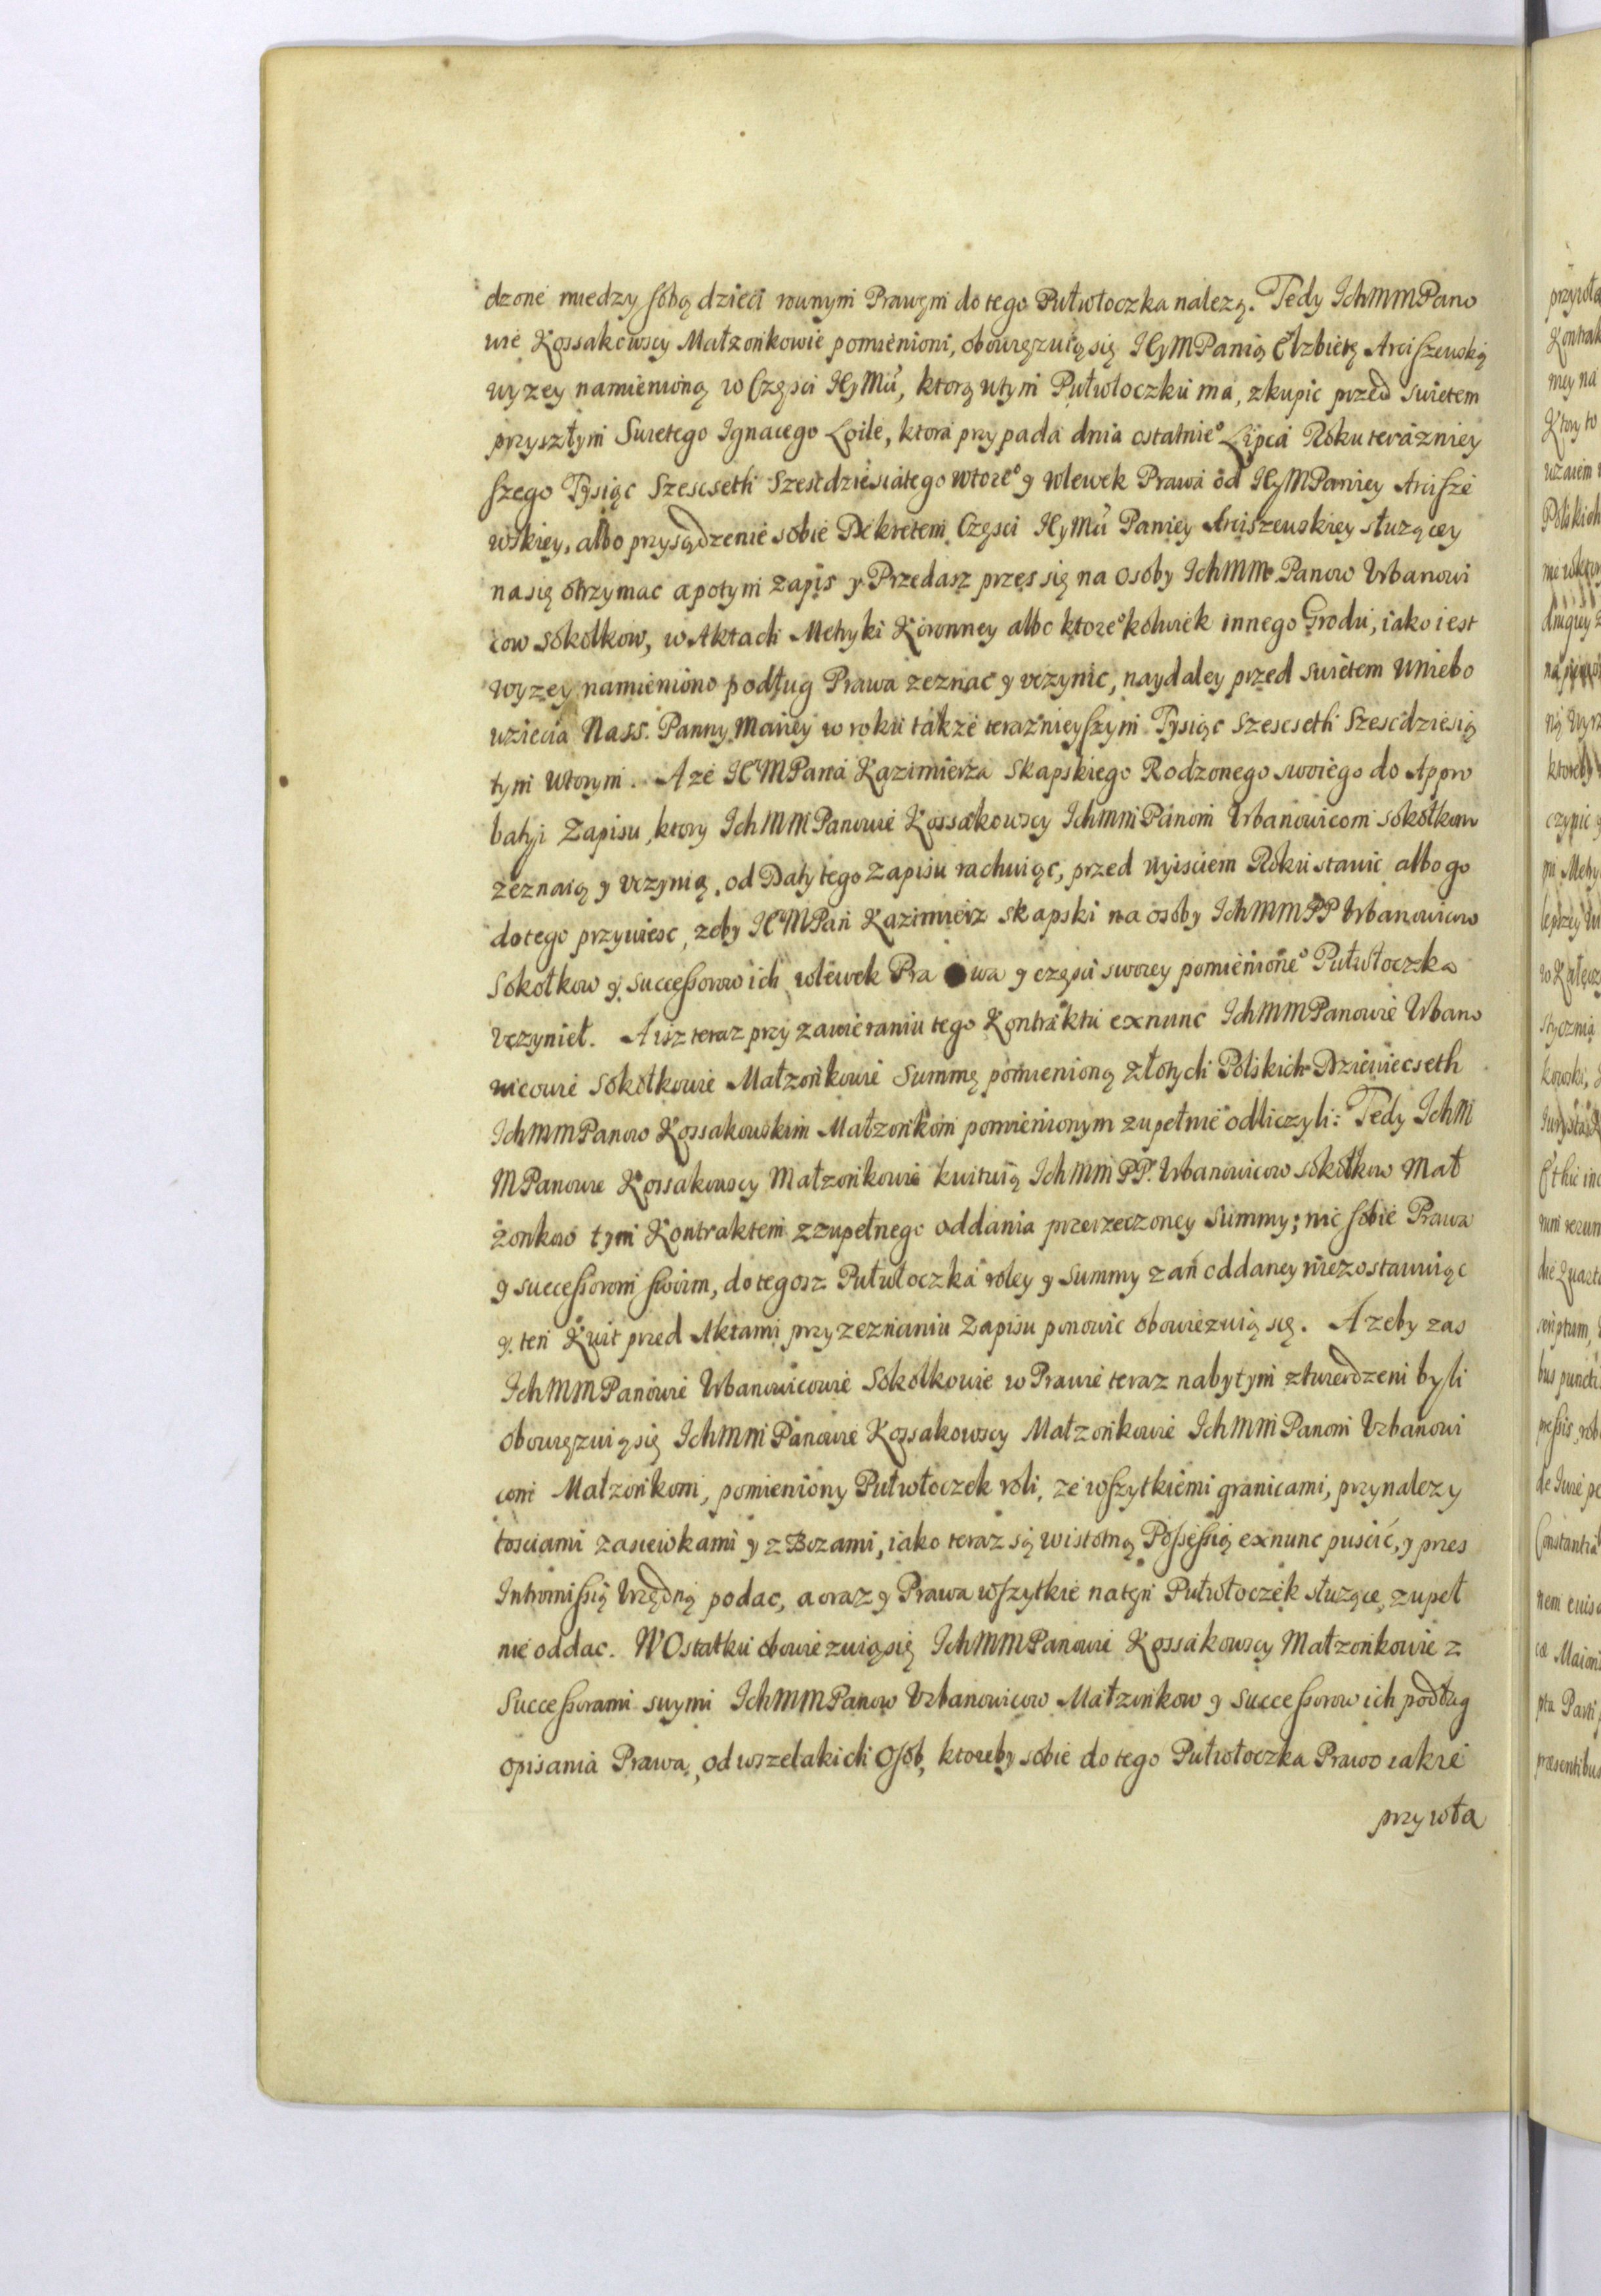 dzone miedzy sobą dzieci rownym Prawem do tego Pułwłoczka nalezą. Tedy IchMMPano
wie Kossakowscy Małzonkowie pomienioni, obowięzuią się IEyMPanią Elzbietę Arciszewską
wyzey namienioną w Części IEyMci, ktorą wtym Pułwłoczku ma, zkupic przed swietem
przyszłym Swietego Ignacego Loile, ktora przypada dnia ostatnie° Lipca Roku terazniey
szego Tysiąc Szescseth Szescdziesiatego wtore° y wlewek Prawa od IEyMPaniey Arcisze
wskiey, albo przysądzenie sobie Dekretem Części IEyMci Paniey Arciszewskiey słuzącey
na się otrzymac a potym zapis y Przedasz przes się na osoby IchMM Panow Urbanowi
cow Sokołkow, w Aktach Metryki Koronney albo ktore°kolwiek innego Grodu, iako iest
wyzey namieniono podług Prawa zeznac y vczynic, naydaley przed swietem Wniebo
wziecia Nass. Panny Mariey w roku takze teraznieyszym Tysiąc Szescseth Szescdziesią
tym wtorym. A ze IEMPana Kazimierza Skapskiego Rodzonego swoiego do Appro
batyi Zapisu, ktory IchMMPanowie Kossakowscy IchMMPanom Urbanowicom Sokołkom
zeznaią y vczynią, od Daty tego Zapisu rachuiąc, przed wyisciem Roku stawic albo go
do tego przywiesc, zeby IEMPan Kazimierz Skapski na osoby IchMMPP Urbanowicow
Sokołkow y successorow ich wlewek Pra wa y części swoiey pomienione° Pułwłoczka
vczynieł. A isz teraz przy zawieraniu tego Kontraktu exnunc IchMMPanowie Urbano
wicowie Sokołkowie Małzonkowie Summę pomienioną złotych Polskich Dziewiecseth
IchMMPanow Kossakowskim Małzonkom pomienionym zupełnie odliczyli: Tedy IchM
MPanowie Kossakowscy Małzonkowie kwituią IchMMPP. Urbanowicow Sokołkow Mał
żonkow tym Kontraktem z zupełnego oddania przerzeczoney Summy; nic sobie Prawa
y successorom swoim, do tegosz Pułwłoczka roley y Summy zań oddaney niezostawuiąc
y ten Kwit przed Aktami przy zeznaniu Zapisu ponowic obowiezuią się. A zeby zas
IchMMPanowie Urbanowicowie Sokołkowie w Prawie teraz nabytym ztwierdzeni byli
obowięzuią się IchMMPanowie Kossakowscy Małzonkowie IchMMPanom Urbanowi
com Małzonkom, pomieniony Pułwłoczek roli, ze wszytkiemi granicami, przynalezy
tosciami zasiewkami y z Bozami, iako teraz są w istotną Possessią exnunc puscić, y przes
Intromissią Vrzędną podac, a oraz y Prawa wszytkie na ten Pułwłoczek słuzące, zupeł
nie oddac. W Ostatku obowiezuią się IchMMPanowie Kossakowscy Małzonkowie z
Successorami swymi IchMMPanow Urbanowicow Małzonkow y successorow ich podług
opisania Prawa, od wszelakich Osob, ktoreby sobie do tego Pułwłoczka Prawo iakie
przywła